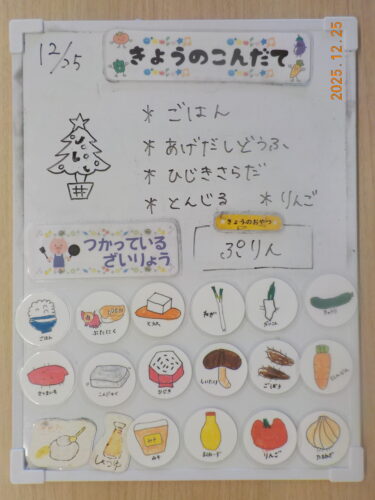 12/25
きょうのこんだて
2025.12.25
* ごはん
* あげだしどうふ
* ひじきさらだ
* とんじる * りんご
つかっている
ざいりょう
きょうのおやつ
ぷりん
ごはん ぶたにく とうふ ねぎ だいこん きゅうり
さつまいも こんにゃく ひじき しいたけ ごぼう にんじん
しょうゆ みそ まよねーず りんご たまねぎ